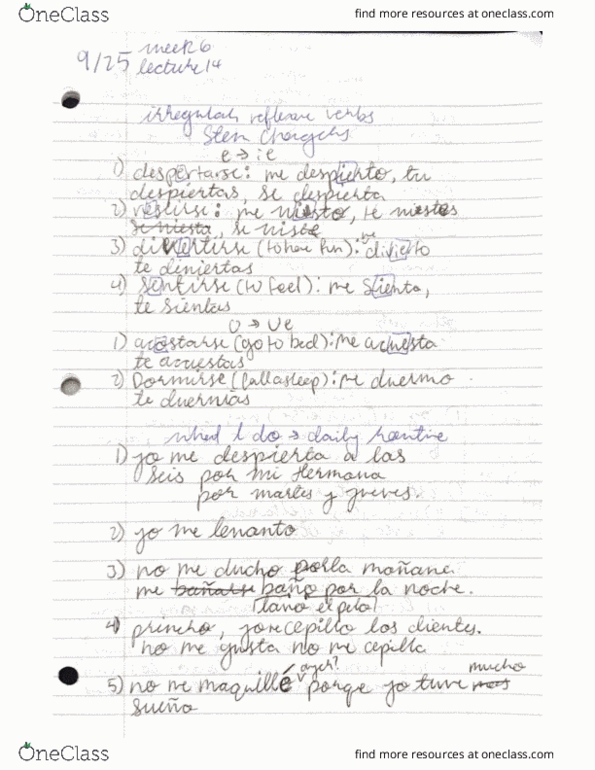 OneClass
find more resources at oneclass.com
9/25 week 6
lecture 14
irregular reflexive verbs
Stem Changers
e → ie
1) despertarse: me despierto, tu
despiertas, se despierta
2) vestirse: me viesto, te viestes
se viesta, se viste
3) divertirse (to have fun): me divierto
te diviertas
4) Sentirse (to feel): me Sienta,
te sientas
o → ue
1) acostarse (go to bed): me acuesta
te acuestas
2) Dormirse (fall asleep): me duermo
te duermas
what I do → daily routine
1) yo me despierta a las
seis por mi Hermana
por martes y jueves.
2) yo me levanto
3) no me ducho por la mañana.
me bañarse baño por la noche.
lavo el pelo
4) yo cepillo los dientes.
no me gusta no me cepilla
5) no me maquillé ayer? porqe yo tuve mucho
sueño
OneClass
find more resources at oneclass.com